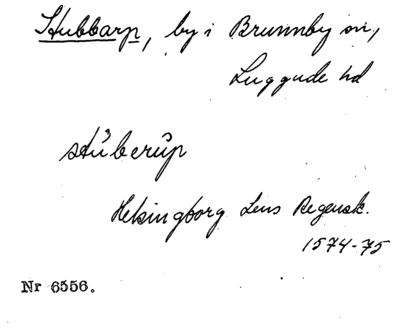 Stubbarp, by i Brunnby sn,
Luggude hd
stůberůp
Helsingborg Lens Regensk.
1574-75
Nr 6556.